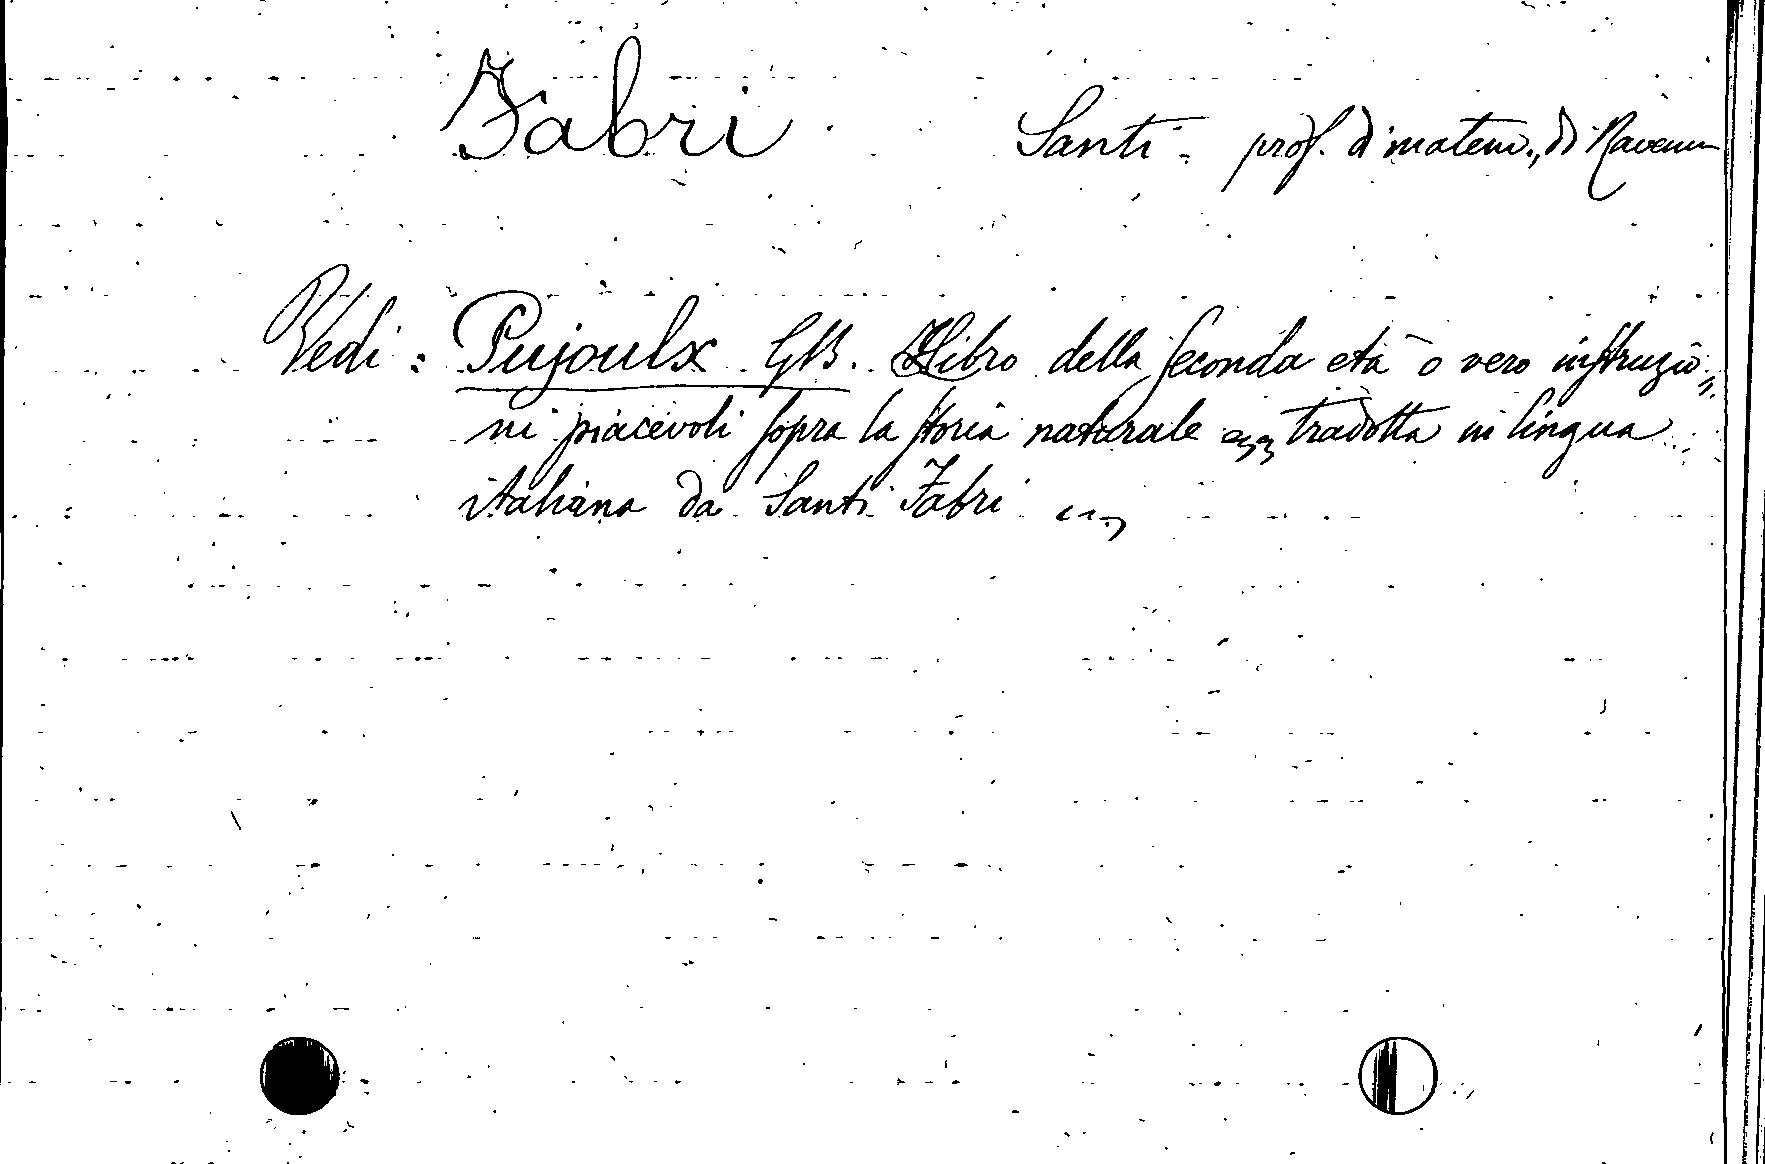 Fabri Santi - prof. di matem., di Ravenna
Vedi : Pujoulx G.B. Libro della seconda età o vero instruzio„
ni piacevoli sopra la storia naturale ... tradotta in lingua
italiana da Santi Fabri ...